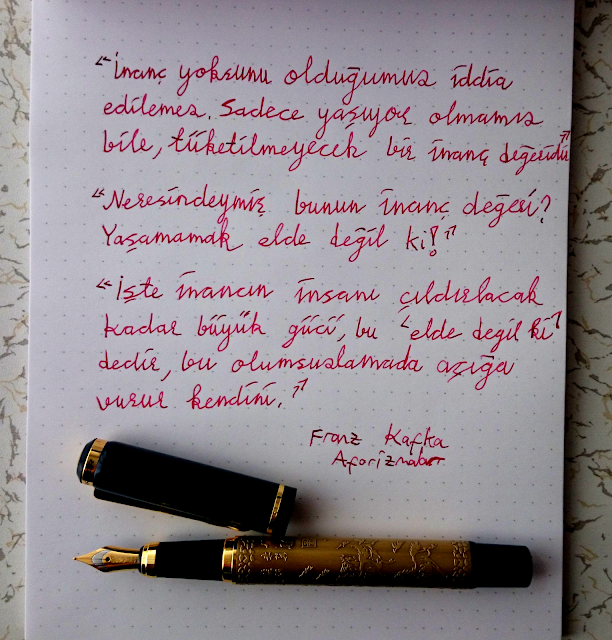 "İnanç yoksunu olduğumuz iddia
edilemez. Sadece yaşıyor olmamız
bile, tüketilmeyecek bir inanç değeridir"
"Neresindeymiş bunun inanç değeri?
Yaşamamak elde değil ki!"
"İşte inancın insanı çıldırtacak
kadar büyük gücü, bu 'elde değil ki'
dedir, bu olumsuzlamada açığa
vurur kendini."
Franz Kafka
Aforizmalar